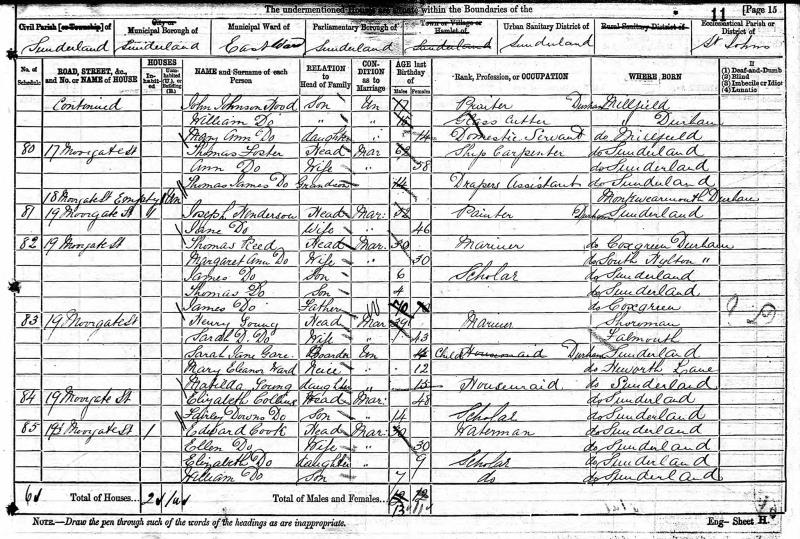 The undermentioned Houses are situate within the Boundaries of the
11 [Page 15
Civil Parish [or Township] of
Sunderland
City or Municipal Borough of
Sunderland
Municipal Ward of
East Ward
Parliamentary Borough of
Sunderland
Town or Village or Hamlet of
Sunderland
Urban Sanitary District of
Sunderland
Rural Sanitary District of
Ecclesiastical Parish or District of
St Johns
No. of Schedule
ROAD, STREET, &c., and No. or NAME of HOUSE
HOUSES
In-habit-ed
Unin-habited (U.), or Building (B.)
NAME and Surname of each Person
RELATION to Head of Family
CON-DITION as to Marriage
AGE last Birthday of
Males Females
Rank, Profession, or OCCUPATION
WHERE BORN
If
(1) Deaf-and-Dumb
(2) Blind
(3) Imbecile or Idiot
(4) Lunatic
Continued John Johnson Wood Son Un 17 Painter Durham Millfield
William Do " " 15 Glass Cutter " Durham
Mary Ann Do daughter " 14 Domestic Servant do Millfield
80 17 Moorgate St Thomas Foster Head Mar Ship Carpenter do Sunderland
Ann Do Wife " 58 do Sunderland
Thomas James Do Grandson 14 Drapers Assistant do Sunderland
18 Moorgate St Empty 1 Un Monkwearmouth Durham
81 19 Moorgate St Joseph Henderson Head Mar: 52 Painter Durham Sunderland
Jane Do Wife " 46
82 19 Moorgate St Thomas Reed Head Mar: 30 Mariner do Coxgreen Durham
Margaret Ann Do Wife " 30 do South Hylton "
James Do Son 6 Scholar do Sunderland
Thomas Do Son 4 do Sunderland
James Do Father W 70 do Coxgreen
83 19 Moorgate St Henry Young Head Mar 39 Mariner
Sarah D. Do Wife " 43 Falmouth
Sarah Jane Gare Boarder Un 4 Child Housemaid Durham Sunderland
Mary Eleanor Ward Niece " 12 do Heworth Lane
Matilda Young daughter " 15 Housemaid do Sunderland
84 19 Moorgate St Elizabeth Collins Head Mar: 48 do Sunderland
Fairley Downs Do Son 14 Scholar do Sunderland
85 19½ Moorgate St 1 Edward Cook Head Mar: 30 Waterman do Sunderland
Ellen Do Wife " 30 do Sunderland
Elizabeth Do daughter 9 Scholar do Sunderland
William Do Son 7 do do Sunderland
6 Total of Houses... 2 1 Total of Males and Females... 12
13 11
NOTE.—Draw the pen through such of the words of the headings as are inappropriate.
Eng— Sheet H.